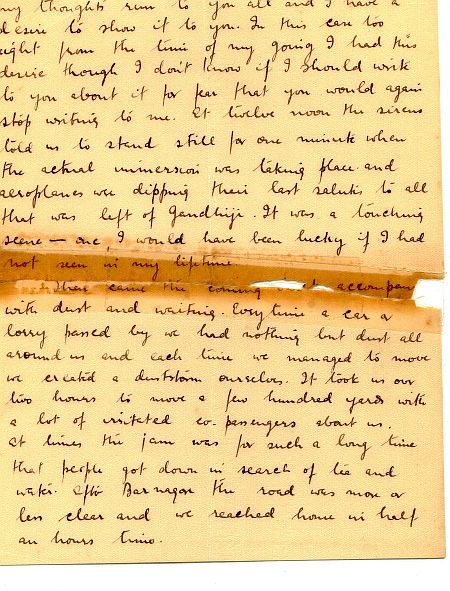 my thoughts run to you all and I have a
desire to show it to you. In this case too
right from the time of my going I had this
desire though I don't know if I should write
to you about it for fear that you would again
stop writing to me. At twelve noon the sirens
told us to stand still for one minute when
the actual immersion was taking place and
aeroplanes were dipping their last salutes to all
that was left of Gandhiji. It was a touching
scene — one, I would have been lucky if I had
not seen in my lifetime.
Then came the coming accompan
with dust and waiting. Everytime a car or
lorry passed by we had nothing but dust all
around us and each time we managed to move
we created a duststorm ourselves. It took us over
two hours to move a few hundred yards with
a lot of irritated co-passengers about us.
At times the jam was for such a long time
that people got down in search of tea and
water. After Barnagar the road was more or
less clear and we reached home in half
an hours time.